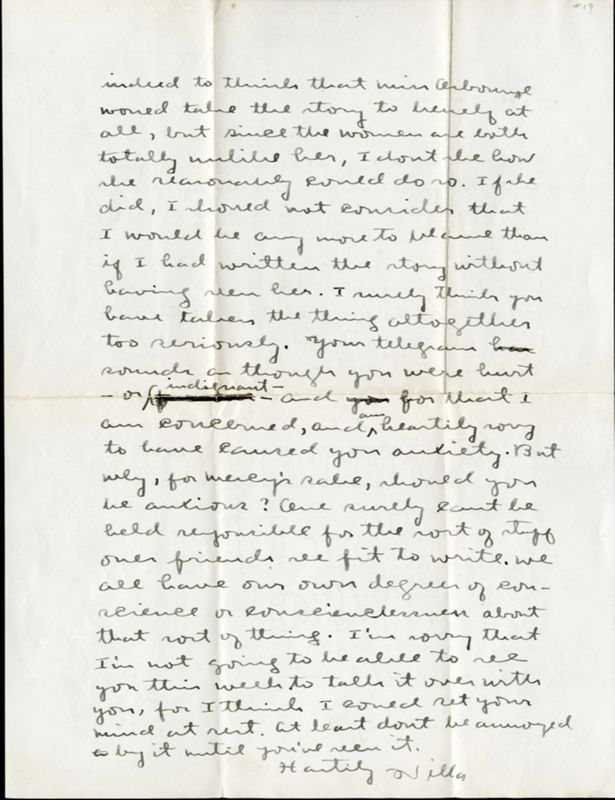 indeed to think that miss Osbourne
would take the story to herself at
all, but since the women are both
totally unlike her, I dont see how
she reasonably could do so. If she
did, I should not consider that
I would be any more to blame than
if I had written the story without
having seen her. I surely think you
have taken the thing altogether
too seriously. Your telegram has
sounds as though you were hurt
indignant
— or — and you for that I
am concerned, and am heartily sorry
to have caused you anxiety. But
why, for mercy's sake, should you
be anxious? One surely cant be
held responsible for the sort of stuff
ones friends see fit to write. We
all have our own degrees of con-
science or consciencelessness about
that sort of thing. I'm sorry that
I'm not going to be able to see
you this week to talk it over with
you, for I think I could set your
mind at rest. At least dont be annoyed
by it until you've seen it.
Hastily Willa